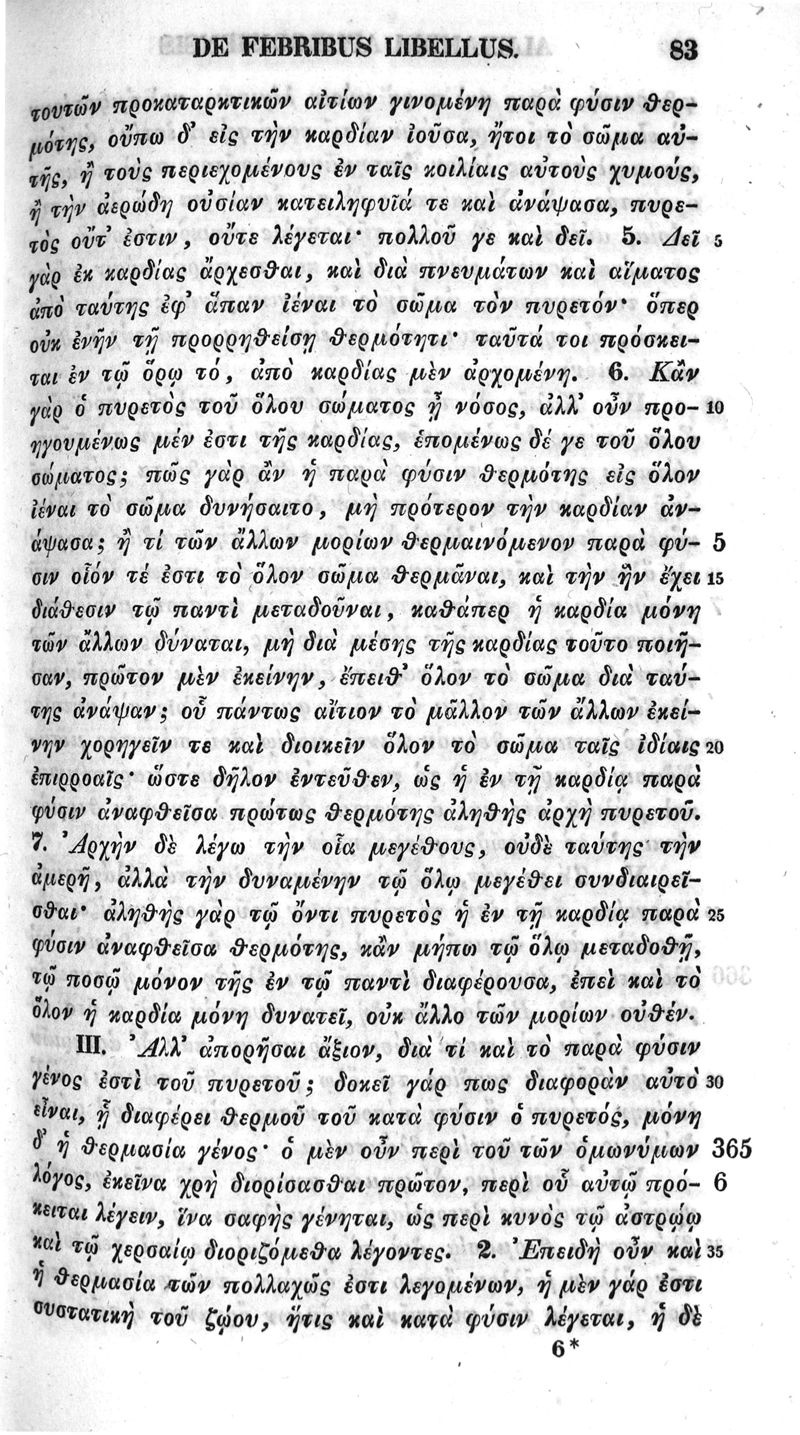 DE FEBRIBUS LIBELLUS. 83
τουτῶν προκαταρκτικῶν αἰτίων γινομένη παρὰ φύσιν θερ-
μότης, οὔπω δ’ εἰς τὴν καρδίαν ἰοῦσα, ἤτοι τὸ σῶμα αὐ-
τῆς, ἢ τοὺς περιεχομένους ἐν ταῖς κοιλίαις αὐτοὺς χυμούς,
ἢ τὴν ἀερώδη οὐσίαν κατειληφυῖά τε καὶ ἀνάψασα, πυρε-
τὸς οὔτ’ ἐστιν, οὔτε λέγεται· πολλοῦ γε καὶ δεῖ. 5. Δεῖ 5
γὰρ ἐκ καρδίας ἄρχεσθαι, καὶ διὰ πνευμάτων καὶ αἵματος
ἀπὸ ταύτης ἐφ’ ἅπαν ἰέναι τὸ σῶμα τὸν πυρετόν· ὅπερ
οὐκ ἐνῆν τῇ προρρηθείσῃ θερμότητι· ταῦτά τοι πρόσκει-
ται ἐν τῷ ὅρῳ τό, ἀπὸ καρδίας μὲν ἀρχομένη. 6. Κἂν
γὰρ ὁ πυρετὸς τοῦ ὅλου σώματος ᾖ νόσος, ἀλλ’ οὖν προ- 10
ηγουμένως μέν ἐστι τῆς καρδίας, ἑπομένως δέ γε τοῦ ὅλου
σώματος; πῶς γὰρ ἂν ἡ παρὰ φύσιν θερμότης εἰς ὅλον
ἰέναι τὸ σῶμα δυνήσαιτο, μὴ πρότερον τὴν καρδίαν ἀν-
άψασα; ἢ τί τῶν ἄλλων μορίων θερμαινόμενον παρὰ φύ- 5
σιν οἷόν τέ ἐστι τὸ ὅλον σῶμα θερμᾶναι, καὶ τὴν ἣν ἔχει 15
διάθεσιν τῷ παντὶ μεταδοῦναι, καθάπερ ἡ καρδία μόνη
τῶν ἄλλων δύναται, μὴ διὰ μέσης τῆς καρδίας τοῦτο ποιῆ-
σαν, πρῶτον μὲν ἐκείνην, ἔπειθ’ ὅλον τὸ σῶμα διὰ ταύ-
της ἀνάψαν; οὗ πάντως αἴτιον τὸ μᾶλλον τῶν ἄλλων ἐκεί-
νην χορηγεῖν τε καὶ διοικεῖν ὅλον τὸ σῶμα ταῖς ἰδίαις 20
ἐπιρροαῖς· ὥστε δῆλον ἐντεῦθεν, ὡς ἡ ἐν τῇ καρδίᾳ παρὰ
φύσιν ἀναφθεῖσα πρώτως θερμότης ἀληθὴς ἀρχὴ πυρετοῦ.
7. Ἀρχὴν δὲ λέγω τὴν οἷα μεγέθους, οὐδὲ ταύτης τὴν
ἀμερῆ, ἀλλὰ τὴν δυναμένην τῷ ὅλῳ μεγέθει συνδιαιρεῖ-
σθαι· ἀληθὴς γὰρ τῷ ὄντι πυρετὸς ἡ ἐν τῇ καρδίᾳ παρὰ 25
φύσιν ἀναφθεῖσα θερμότης, κἂν μήπω τῷ ὅλῳ μεταδοθῇ,
τῷ ποσῷ μόνον τῆς ἐν τῷ παντὶ διαφέρουσα, ἐπεὶ καὶ τὸ
ὅλον ἡ καρδία μόνη δυνατεῖ, οὐκ ἄλλο τῶν μορίων οὐθέν.
III. Ἀλλ’ ἀπορῆσαι ἄξιον, διὰ τί καὶ τὸ παρὰ φύσιν
γένος ἐστὶ τοῦ πυρετοῦ; δοκεῖ γάρ πως διαφορὰν αὐτὸ 30
εἶναι, ᾗ διαφέρει θερμοῦ τοῦ κατὰ φύσιν ὁ πυρετός, μόνη
δ’ ἡ θερμασία γένος· ὁ μὲν οὖν περὶ τοῦ τῶν ὁμωνύμων 365
λόγος, ἐκεῖνα χρὴ διορίσασθαι πρῶτον, περὶ οὗ αὐτῷ πρό- 6
κειται λέγειν, ἵνα σαφὴς γένηται, ὡς περὶ κυνὸς τῷ ἀστρῴῳ
καὶ τῷ χερσαίῳ διοριζόμεθα λέγοντες. 2. Ἐπειδὴ οὖν καὶ 35
ἡ θερμασία τῶν πολλαχῶς ἐστι λεγομένων, ἡ μὲν γάρ ἐστι
συστατικὴ τοῦ ζῴου, ἥτις καὶ κατὰ φύσιν λέγεται, ἡ δὲ
6*